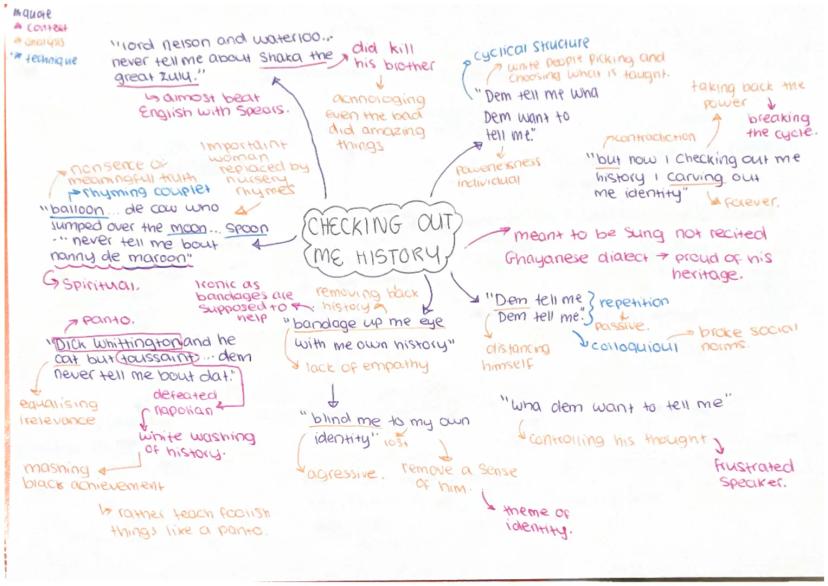 quote
context
analysis
technique
"lord nelson and waterloo...
never tell me about Shaka the
great zulu."
did kill
his brother
almost beat
English with spears.
achnologing
even the bad
did amazing
things
cyclical structure
white people picking and
choosing what is taught.
"Dem tell me wha
Dem want to
tell me."
powerlesness
individual
taking back the
power
breaking
the cycle.
contradiction
"but now I checking out me
history I carving out
me identity"
forever.
nonsence or
meaningful truth
rhyming couplet
importaint
woman
replaced by
nursery
rhymes
"balloon... de cow who
jumped over the moon... spoon
... never tell me bout
nanny de maroon"
spiritual.
CHECKING OUT
ME HISTORY
meant to be sung not recited
Ghayanese dialect → proud of his
heritage.
"Dem tell me
Dem tell me."
repetition
passive.
colloquioul
broke social
norms.
distancing
himself
ironic as
bandages are
supposed to
help
removing back
history
"bandage up me eye
with me own history"
lack of empathy
panto.
"Dick Whittington and he
cat but toussaint... dem
never tell me bout dat."
equalising
irelevance
defeated
napolian
white washing
of history.
mashing
black achievement
rather teach foolish
things like a panto.
"blind me to my own
identity"
lost
agressive.
remove a sense
of him.
theme of
identity.
"wha dem want to tell me"
controlling his thought
frustrated
speaker.